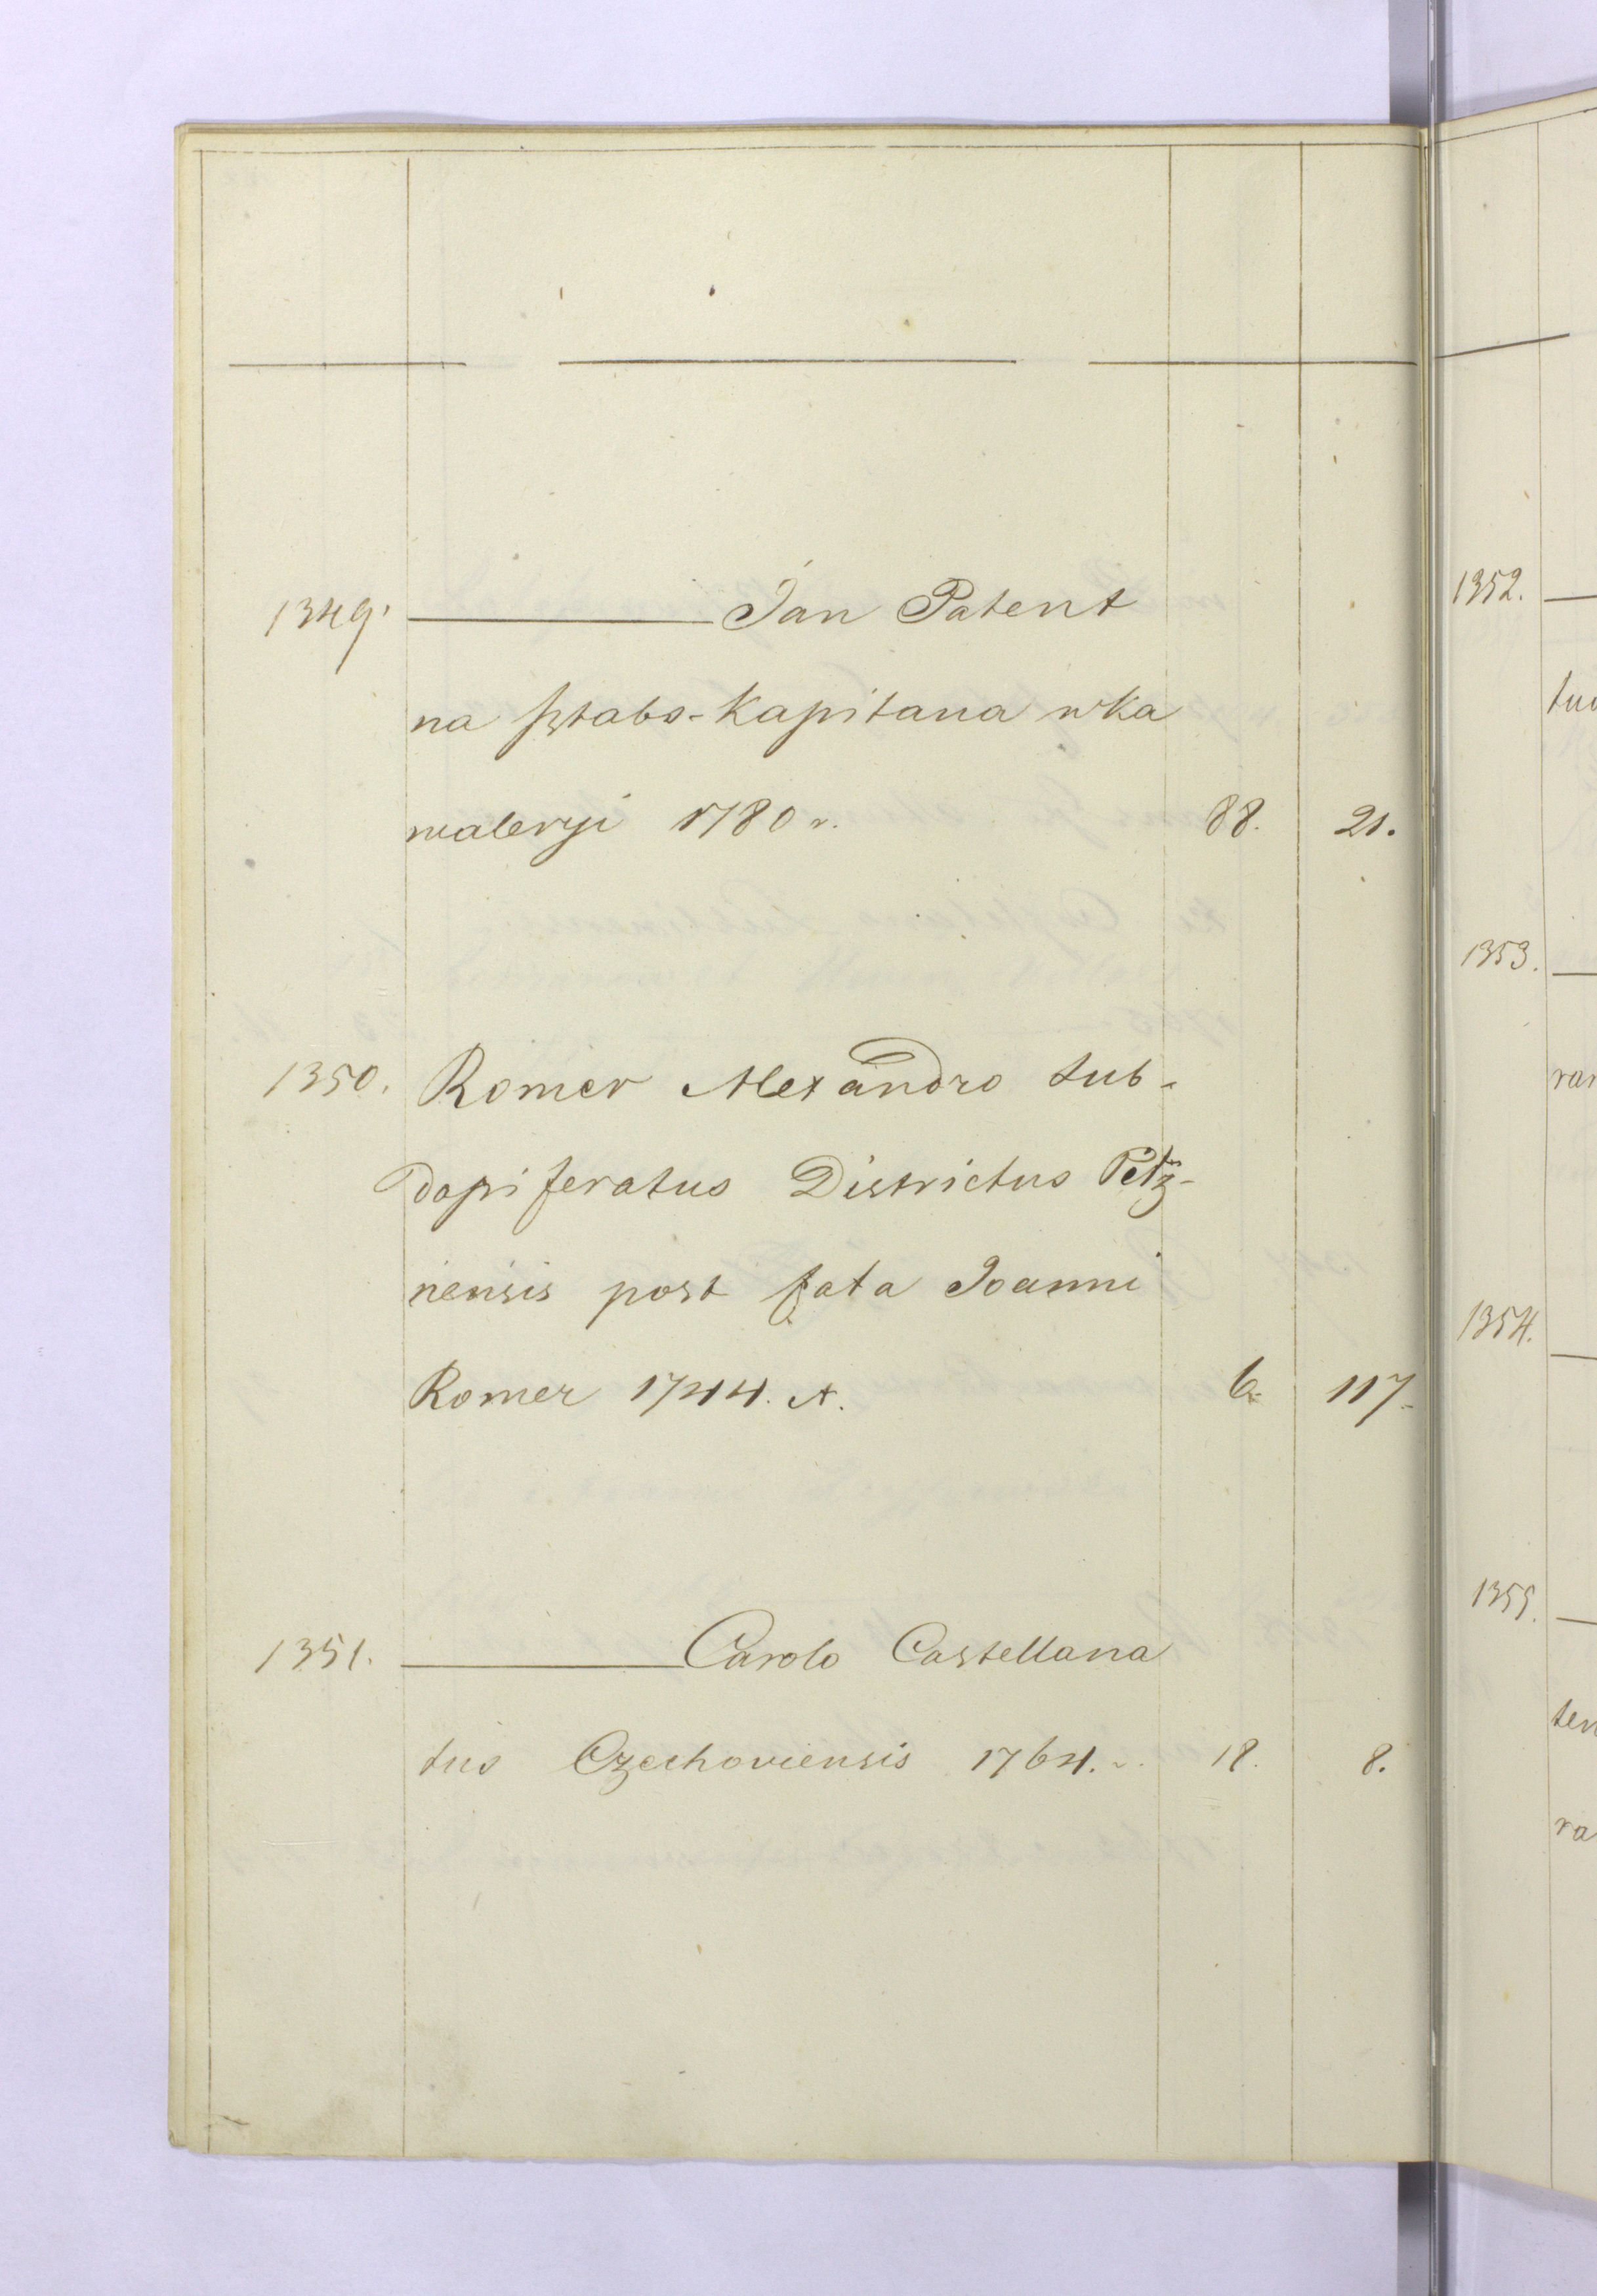 1349. ——— Jan Patent
na sztabs-Kapitana wka
waleryi 1780 r. 88. 21.
1350. Romer Alexandro sub-
dapiferatus Districtus Petz-
nensis post fata Joanni
Romer 1744. r. 6. 117.
1351. ——— Carolo Castellana
tus Czechoviensis 1764. r. 18. 8.
1352.
tu
1353.
ra
1354.
1355.
ten
ra